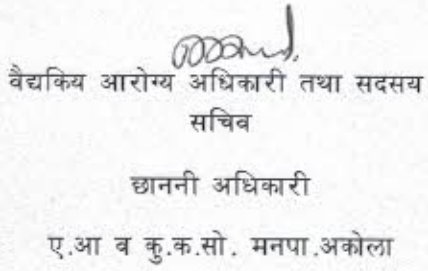 वैद्यकिय आरोग्य अधिकारी तथा सदसय
सचिव
छाननी अधिकारी
ए.आ व कु.क.सो. मनपा.अकोला